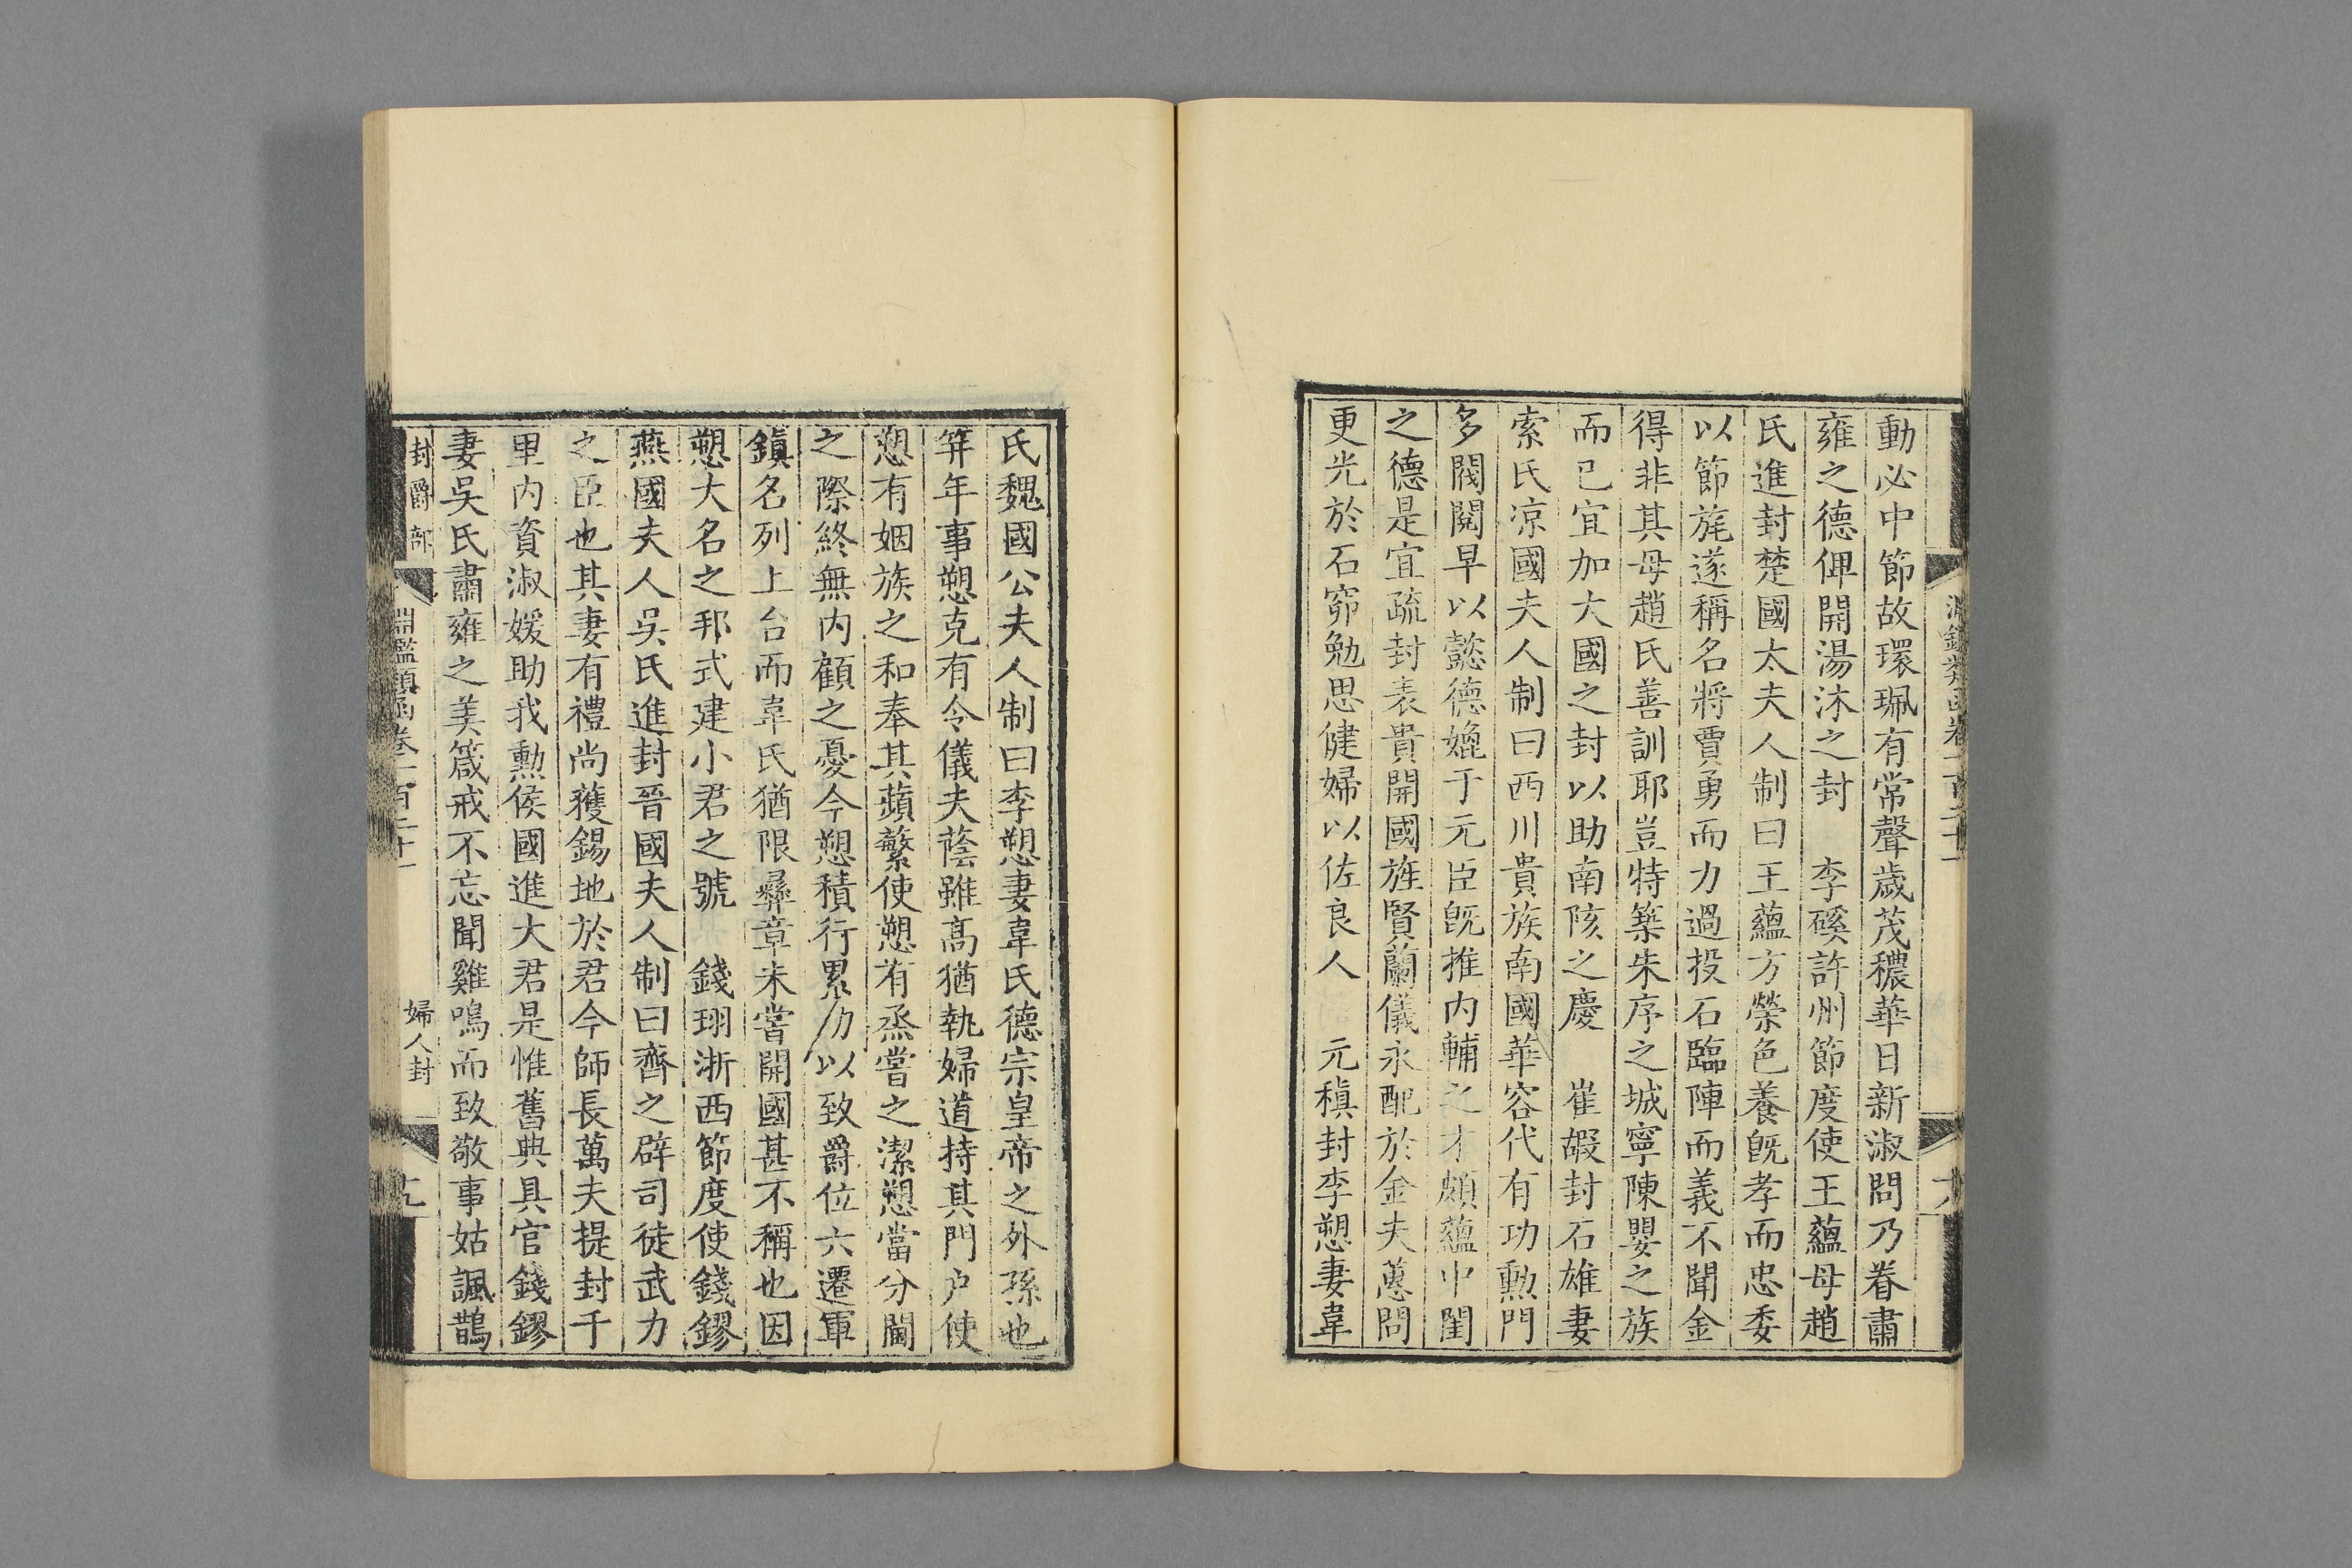 動必中節故環珮有常聲歲茂穠華日新淑問乃眷肅
雍之德俾開湯沐之封　李磎許州節度使王蘊母趙
氏進封楚國太夫人制曰王蘊方榮色養既孝而忠委
以節旄遂稱名將賈勇而力過投石臨陣而義不聞金
得非其母趙氏善訓耶豈特築朱序之城寧陳嬰之族
而已宜加大國之封以助南陔之慶　崔嘏封石雄妻
索氏凉國夫人制曰西川貴族南國華容代有功勲門
多閥閱早以懿德媲于元臣既推內輔之才頗蘊中閨
之德是宜疏封表貴開國旌賢蘭儀永配於金夫蕙問
更光於石窌勉思健婦以佐良人　元稹封李愬妻韋
氏魏國公夫人制曰李愬妻韋氏德宗皇帝之外孫也
笄年事愬克有令儀夫蔭雖髙猶執婦道持其門户使
愬有姻族之和奉其蘋蘩使愬有烝嘗之潔愬當分閫
之際終無內顧之憂今愬積行累功以致爵位六遷軍
鎮名列上台而韋氏猶限彞章未嘗開國甚不稱也因
愬大名之邦式建小君之號　錢珝浙西節度使錢鏐
燕國夫人吳氏進封晉國夫人制曰齊之辟司徒武力
之臣也其妻有禮尚獲錫地於君今師長萬夫提封千
里內資淑媛助我勲侯國進大君是惟舊典具官錢鏐
妻吳氏肅雍之美箴戒不忘聞雞鳴而致敬事姑諷鵲
封爵部
淵鑑類函卷一百二十一
婦人封